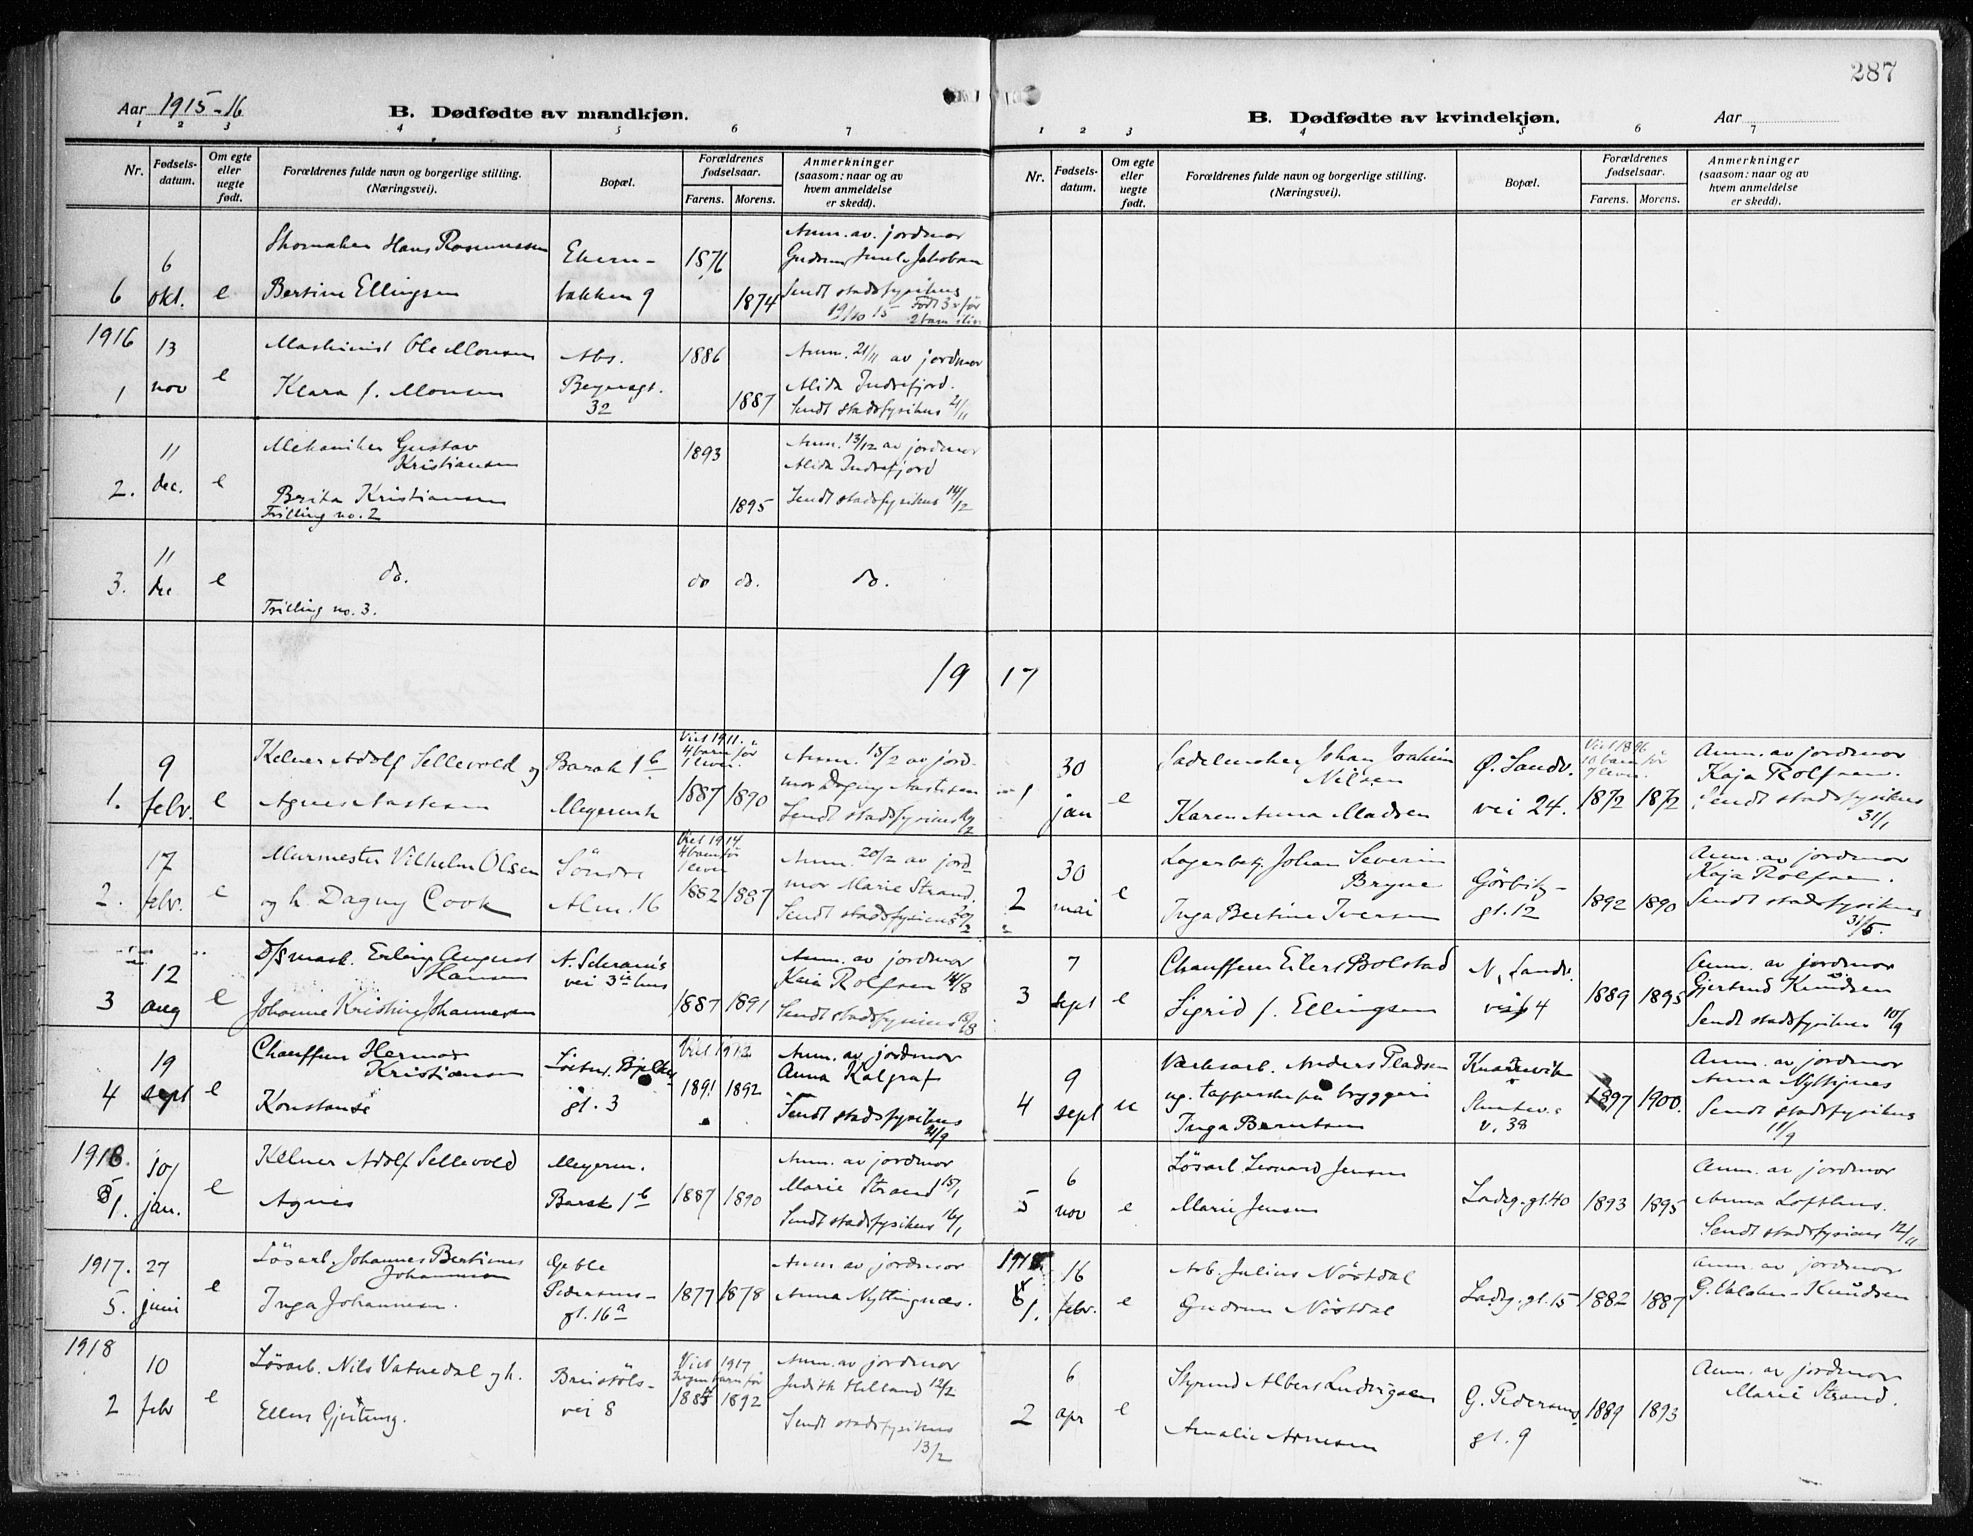 Aar 1915-16
B. Dødfødte av mandkjøn.
1 2 3 4 5 6 7
Nr.
Fødsels-
datum.
Om egte
eller
uegte
født.
Forældrenes fulde navn og borgerlige stilling.
(Næringsvei).
Bopæl.
Forældrenes
fødselsaar.
Farens. Morens.
Anmerkninger
(saasom: naar og av
hvem anmeldelse
er skedd).
6
6
okt.
e
Skomaker Hans Rasmussen
Bertine Ellingsen
bakken 9
1876
1874
Anm. av jordmor
Gudrun Jakobsen
Sendt stadsfysikus
19/10 15 Født 3 før
1916
1
13
nov
e
Maskinist Ole Monsen
Klara f. Monsen
32
1886
1887
Anm. 21/11 av jordmor
Alida Indrefjord.
Sendt stadsfysikus 21/11
2.
11
dec.
e
Mekaniker Gustav
Kristiansen
Brita Kristiansen
Trilling no. 2
1893
1895
Anm. 13/12 av jordmor
Alida Indrefjord
Sendt stadsfysikus 14/12
3.
11
dec
e
do.
Trilling no. 3.
do do.
do.
19
1.
9
febr.
e
Kelner Adolf Sellevold og
Agnes Aastesen
Barak 1 b
Møyermk
Viet 1911.
4 barn før
1 lever.
1887 1890
Anm. 15/2 av jord-
mor Dagny Aastesen
Sendt stadsfysikus
2.
17
febr.
e
Murmester Vilhelm Olsen
og h. Dagny Cook
Søndre
Alm. 16
Viet 1914
4 barn før
1 lever
1882 1887
Anm. 20/2 av jord
mor Marie Strand.
Sendt stadsfysikus 20/2
3
12
aug
e
D/S mask. Erling August
Hansen
Johanne Kristine Johannesen
vei 3 hus
1887 1891
Anm. av jordmor
Kaia Rolfsen 14/8
Sendt stadsfysikus 15/8
4
19
sept
e
Chauffeur Herman
Kristiansen
Konstanse
gt. 3
Viet 1912
1891 1892
Anm. av jordmor
Anna Kalgraf
Sendt stadsfysikus
21/9
1918.
1.
10/
jan.
e
Kelner Adolf Sellevold
Agnes
Barak 1 b
1887 1890
Anm. av jordmor
Marie Strand 15/1
Sendt stadsfysikus 16/1
1917.
5.
27
juni
e
Løsarb. Johannes Bertinus
Johannesen
Inga Johannesen.
Geble
Pedersens-
gt. 16 a
1877 1878
Anm av jordmor
Anna Nyttingnæs.
1918
2
10
febr
e
Løsarb. Nils Vatnedal og h.
Ellen Gjertung.
vei 8
Viet 1917
Ingen barn før
1885 1892
Anm. av jordmor
Judith Helland 12/2
Sendt stadsfysikus
13/2
287
B. Dødfødte av kvindekjøn.
Aar
1 2 3 4 5 6 7
Nr.
Fødsels-
datum.
Om egte
eller
uegte
født.
Forældrenes fulde navn og borgerlige stilling.
(Næringsvei).
Bopæl.
Forældrenes
fødselsaar.
Farens. Morens.
Anmerkninger
(saasom: naar og av
hvem anmeldelse
er skedd).
17
1
30
jan
e
Sadelmaker Johan Joakim
Nilsen
Karen Anna Madsen
Ø. Sandv.
vei 24.
Viet 1896
10 barn før
7 lever.
1872 1872
Anm. av jordmor
Kaja Rolfsen.
Sendt stadsfysikus
31/1
2
30
mai
e
Lagerbetj. Johan Severin
Bryne
Inga Bertine Iversen
Görbitz-
gt. 12
1892 1890
Anm. av jordmor
Kaja Rolfsen.
Sendt stadsfysikus
31/5.
3
7
sept
e
Chauffeur Eilert Bolstad
Sigrid f. Ellingsen
N. Sandv.
vei 64
1889 1895
Anm. av jordmor
Gjertrud Knudsen
Sendt stadsfysikus 10/9
4
9
sept
u
Verksarb. Anders Pladsen
ug. tapperske på bryggeri
Inga Berntsen
v. 38
1897 1900.
Anm. av jordmor
Anna Nyttignes
Sendt stadsfysikus
11/9
5
6
nov
e
Løsarb Leonard Jensen
Marie Jensen
Ladeg. gt. 40
1893 1895
Anm. av jordmor
Anna Lofthus.
Sendt stadsfysikus 12/11
1918
1.
16
febr.
e
Arb. Julius Nøstdal
Gudrun Nøstdal
Ladeg. gt. 15
1882 1887
Anm. av jordmor
Knudsen
2
6
apr
e
Styrmd Albert Ludvigsen
Amalie Arnesen
G. Pedersens
gt. 9
1889 1893
Anm. av jordmor
Marie Strand.